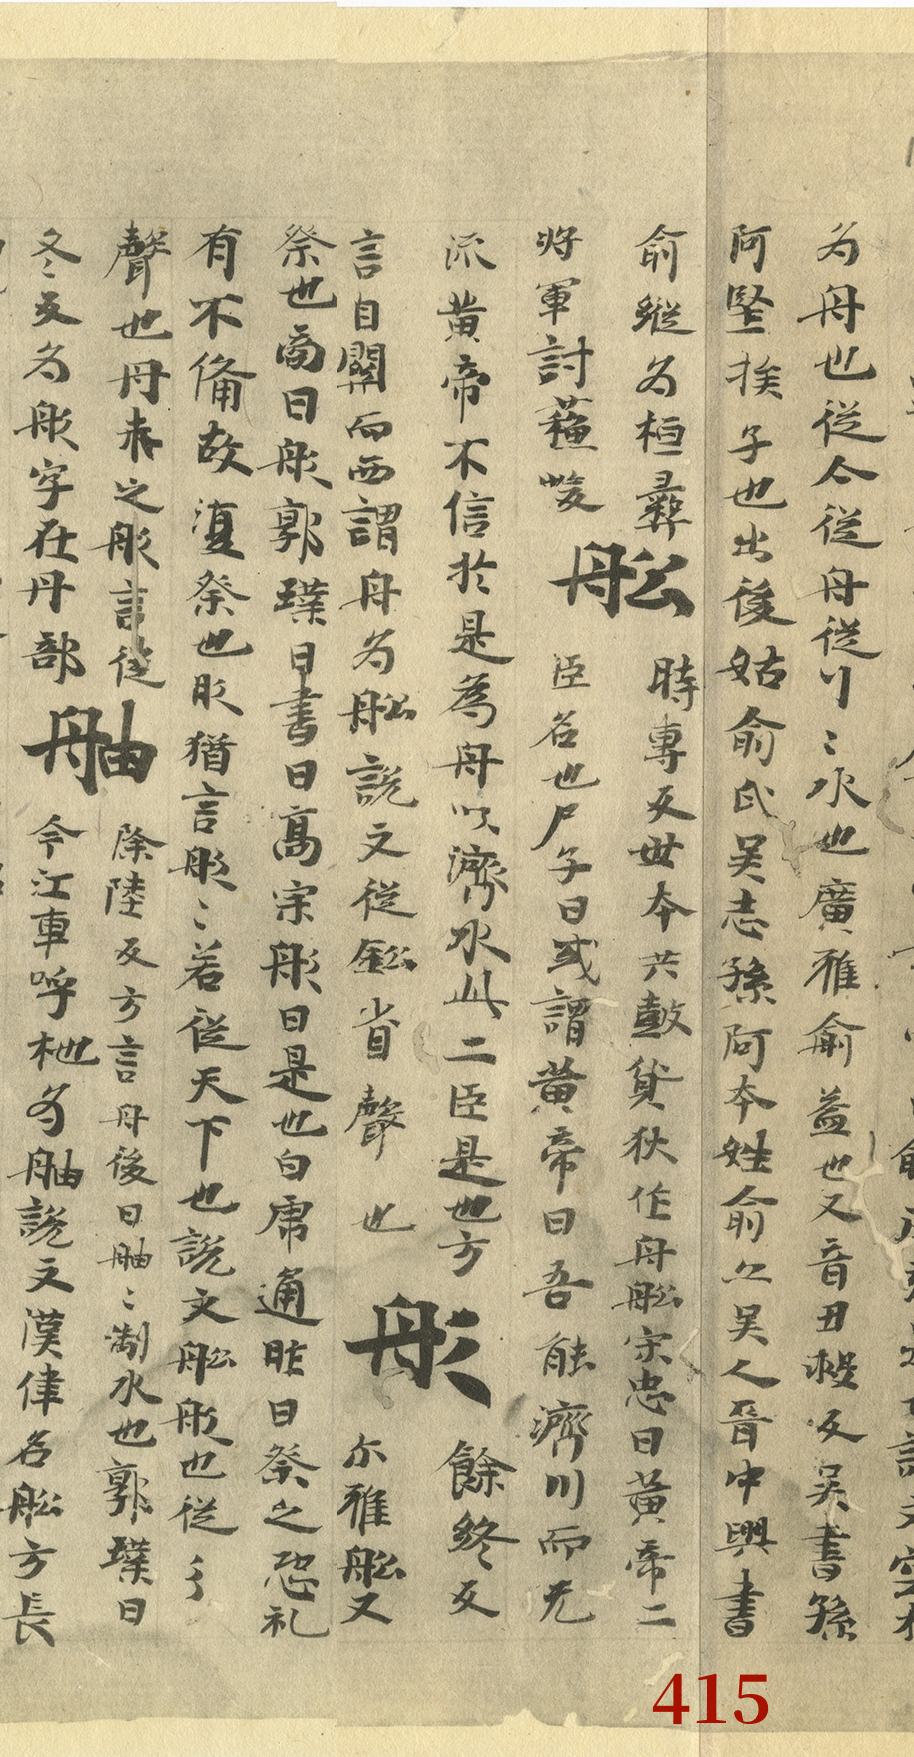 為舟也從亼從舟從巜〻水也廣雅俞益也又音丑救反吳書孫
阿堅挨子也出後姑俞氏吳志孫阿本姓俞亡吳人晉中興書
俞縱為桓彝
將軍討蘓峻
舩
時專反世本共鼓貨狄作舟舩宋忠曰黃帝二
臣名也尸子曰或謂黃帝曰吾能濟川而无
流黃帝不信於是為舟以濟水此二臣是也方
言自關而西謂舟為舩說文從鈆省聲也
舩
餘終反
尒雅舩又
祭也商曰肜郭璞曰書曰高宗肜日是也白虎通昨日祭之恐礼
有不備故復祭也肜猶言肜〻若從天下也說文舩舩也從彡
聲也丹赤之彤言從
冬反為彤字在丹部
舳
除陸反方言舟後曰舳〻制水也郭璞曰
今江東呼柂為舳說文漢律名舩方長
415